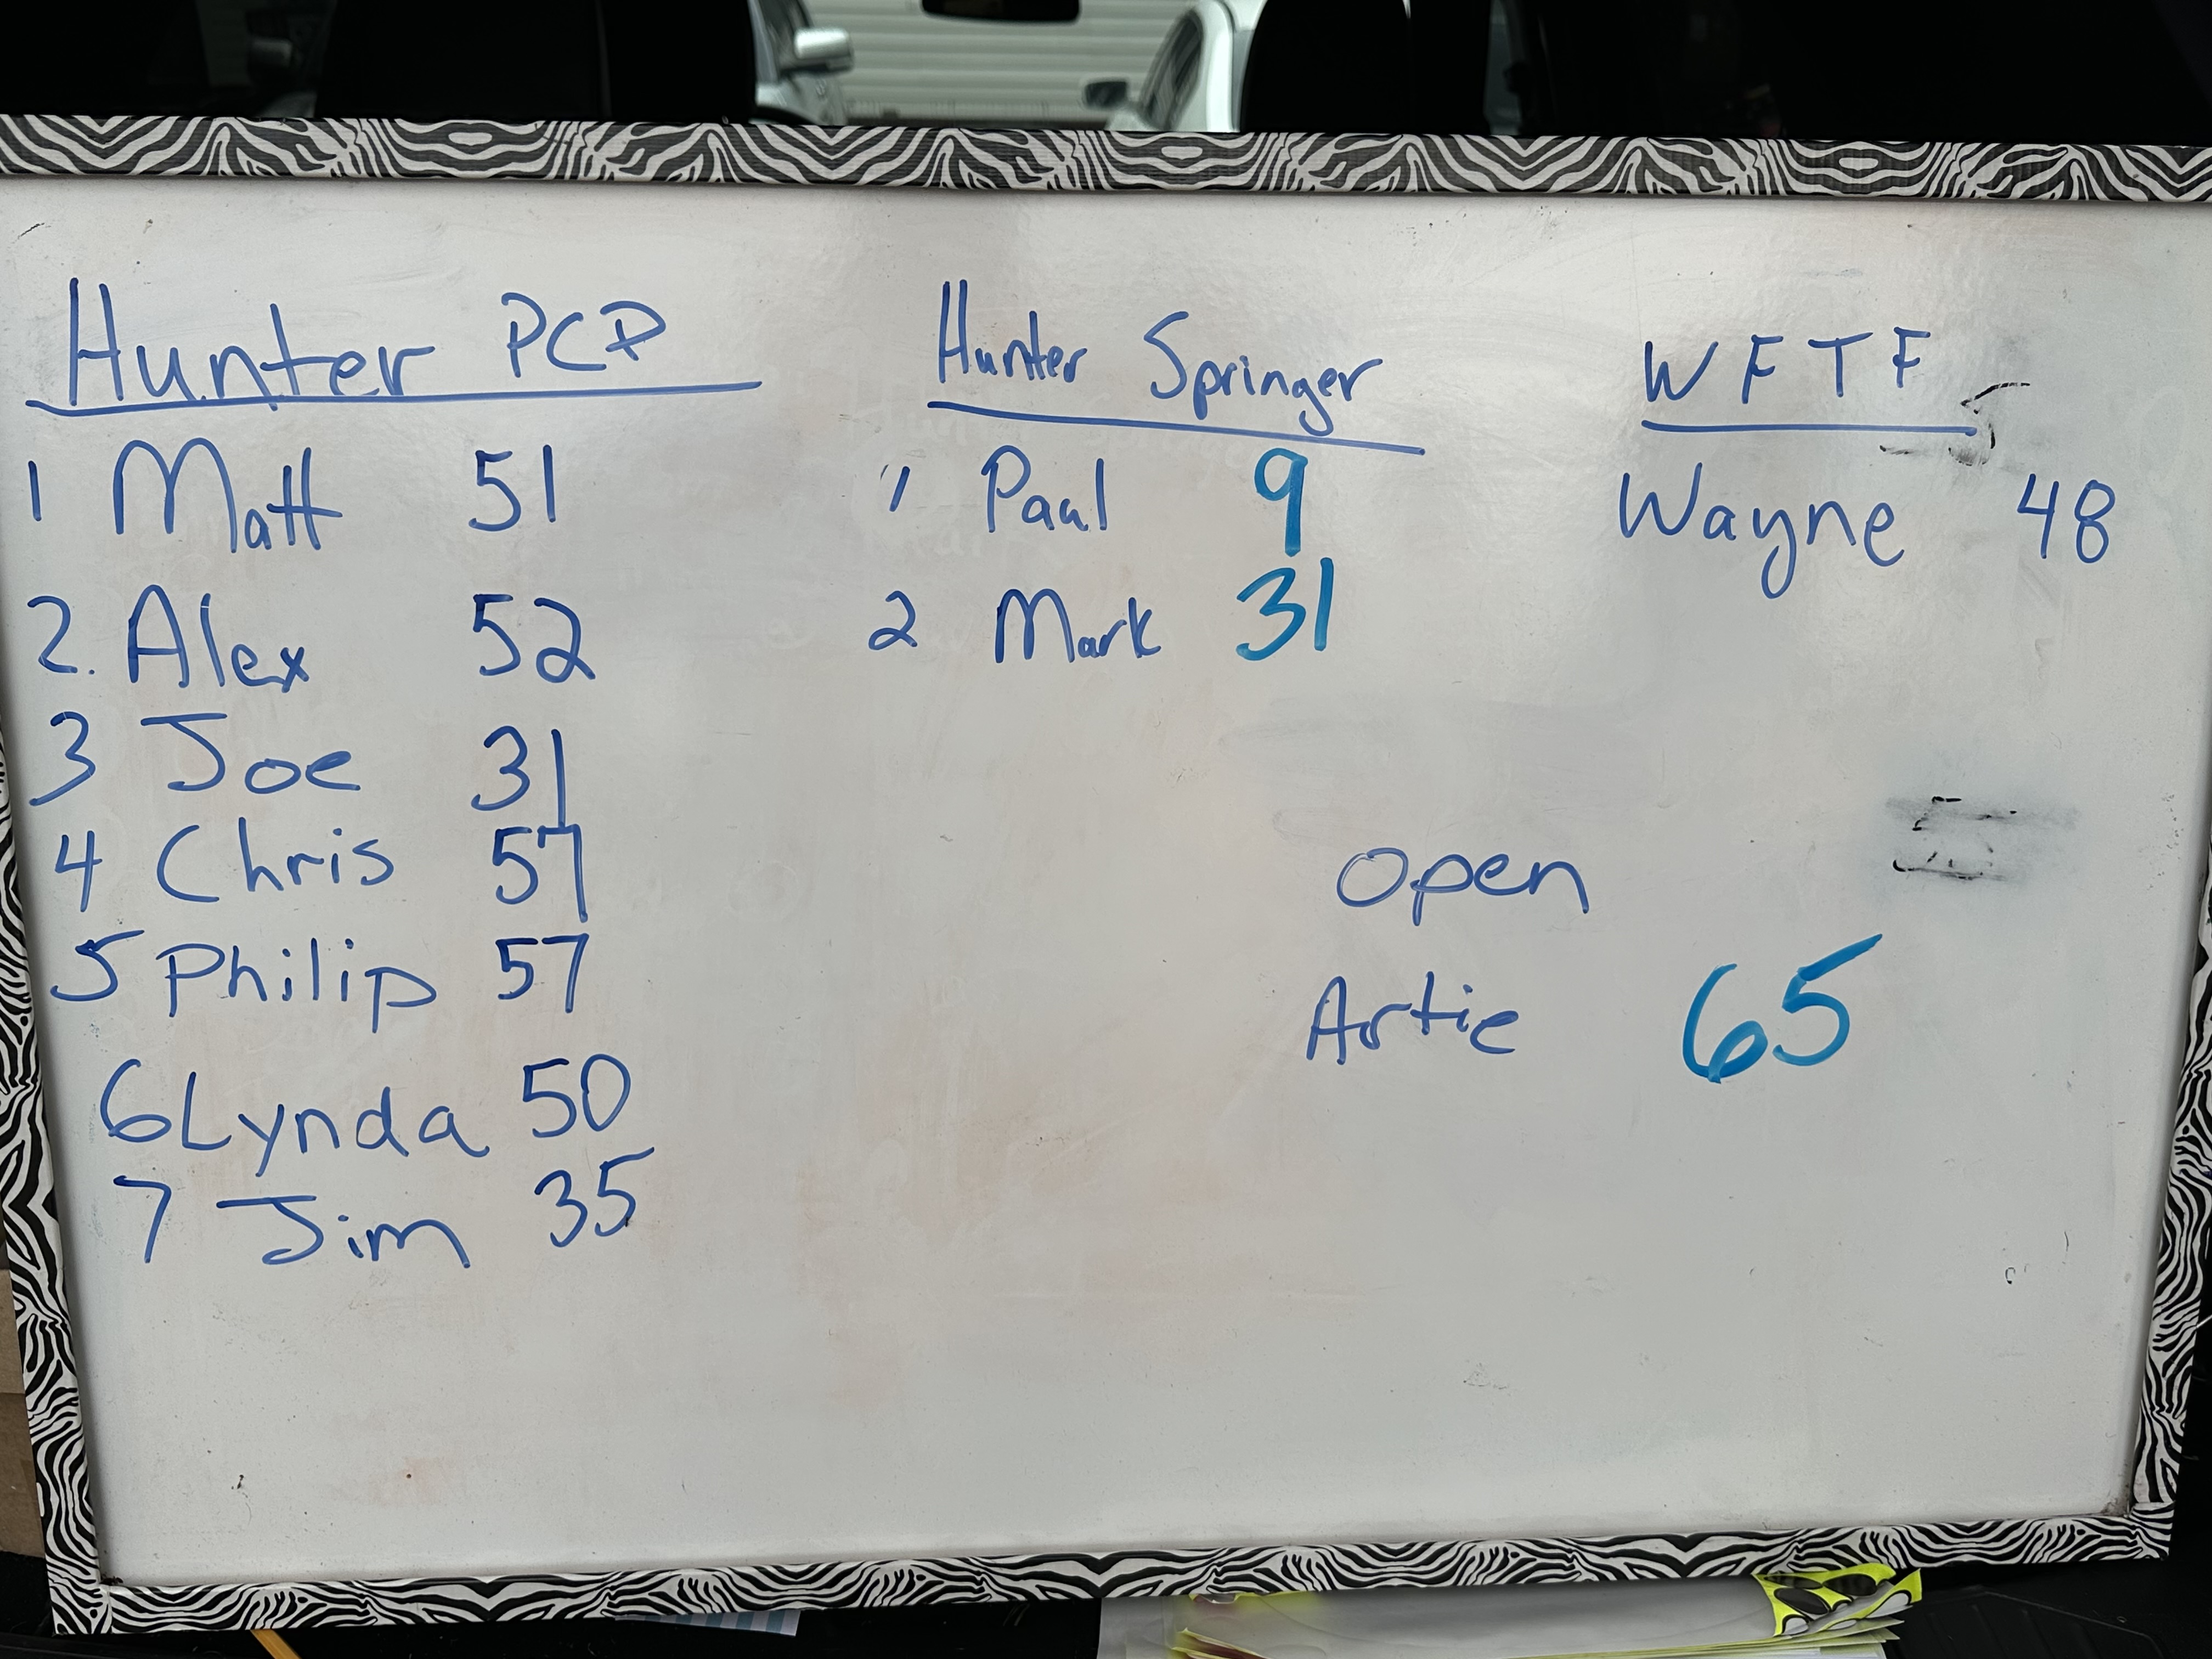 Hunter PCP
1 Matt 51
2. Alex 52
3 Joe 31
4 Chris 57
5 Philip 57
6 Lynda 50
7 Jim 35
Hunter Springer
1 Paul 9
2 Mark 31
WFTF
Wayne 48
Open
Artie 65